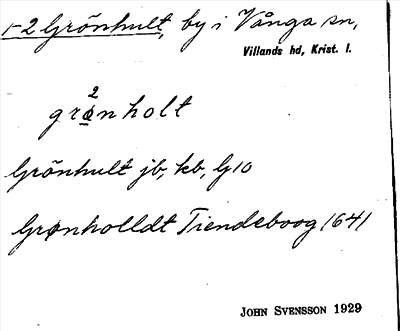 1-2 Grönhult, by i Vånga sn,
Villands hd, Krist. l.
2
grønholt
Grönhult jb, kb, G10
Grønholldt Tiendeboog 1641
JOHN SVENSSON 1929